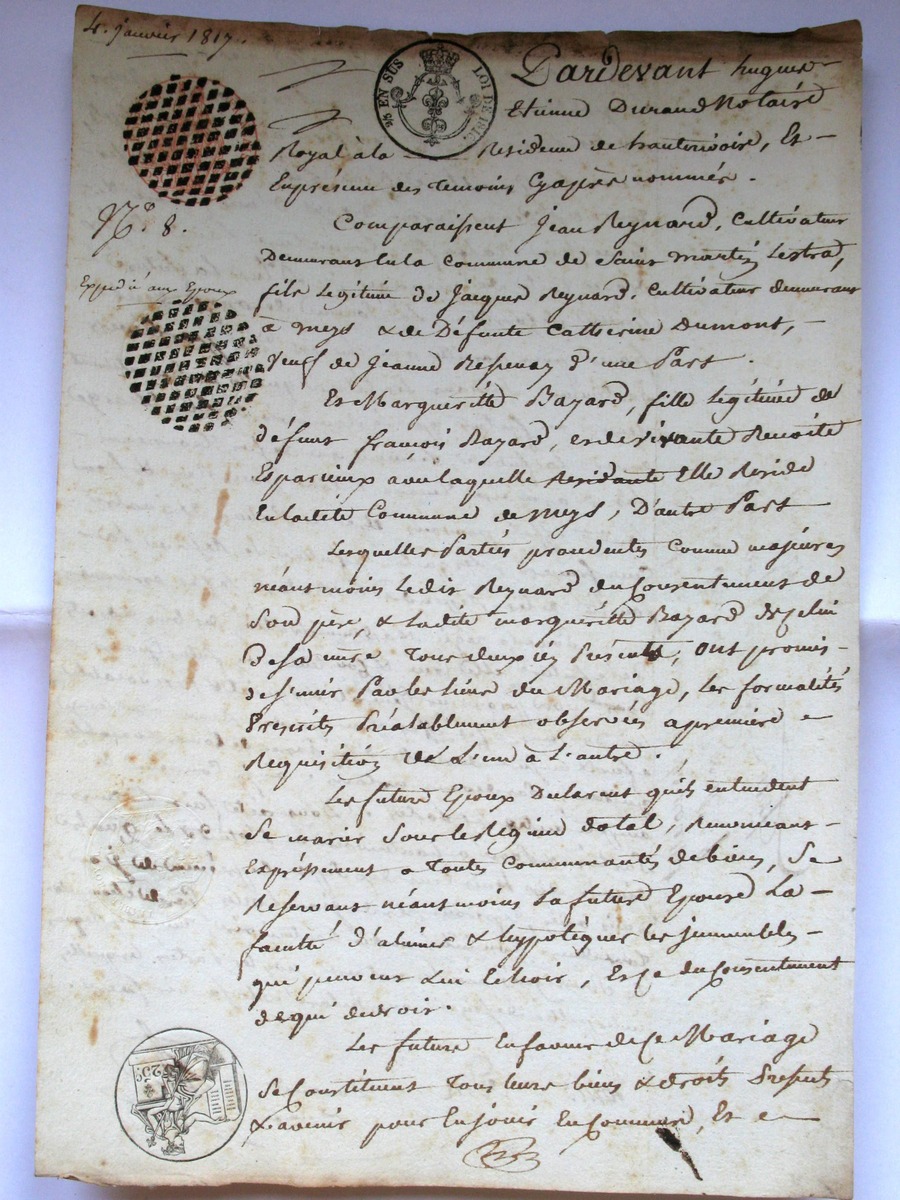 4. janvier 1817.
25c EN SUS LOI DE 1816
Pardevant hugues
Etienne Durand Notaire
Royal à la Residence de hauterivoire, Et
En présence des temoins Cyaprès nommés.
N.o 8.
Comparaissent Jean Reynard, Cultivateur
Demeurant en la commune de Saint martin Lestra,
Expedié aux Epoux
fils Legitime de Jacques Reynard, cultivateur demeurant
à meys & de Défunte Catherine Dumont,
Veuf de Jeanne d'une Part.
Et Marguerite Bazard, fille Légitime de
défunt françois Bazard, et de vivante Benoite
Esparieux avec laquelle Residante Elle Reside
En ladite Commune de meys, D'autre Part
Lesquelles Parties procedentes comme majeures
néantmoins Ledit Reynard du Consentement de
Son père, & Ladite marguerite Bazard de Celui
de sa mere tous deux icy Présents, ont promis
de s'unir Par les liens du Mariage, les formalités
Prescrites Préalablement observées a premiere
Requisition de L'un à L'autre.
Les futurs Epoux Declarent qu'ils entendent
Se marier Sous le Régime dotal, Renonceant
Expressement a Toutes Communautés de biens, Se
Reservant néantmoins La future Epouse La
faculté d'aliener & hypotéquer les immeubles
qui peuvent Lui Echoir, Et Ce du Consentement
de qui de droit.
Les futurs En faveur de Ce Mariage
Se Constituent Tous leurs biens & droits Présents
& avenir pour En jouir En Commun, Et
25c